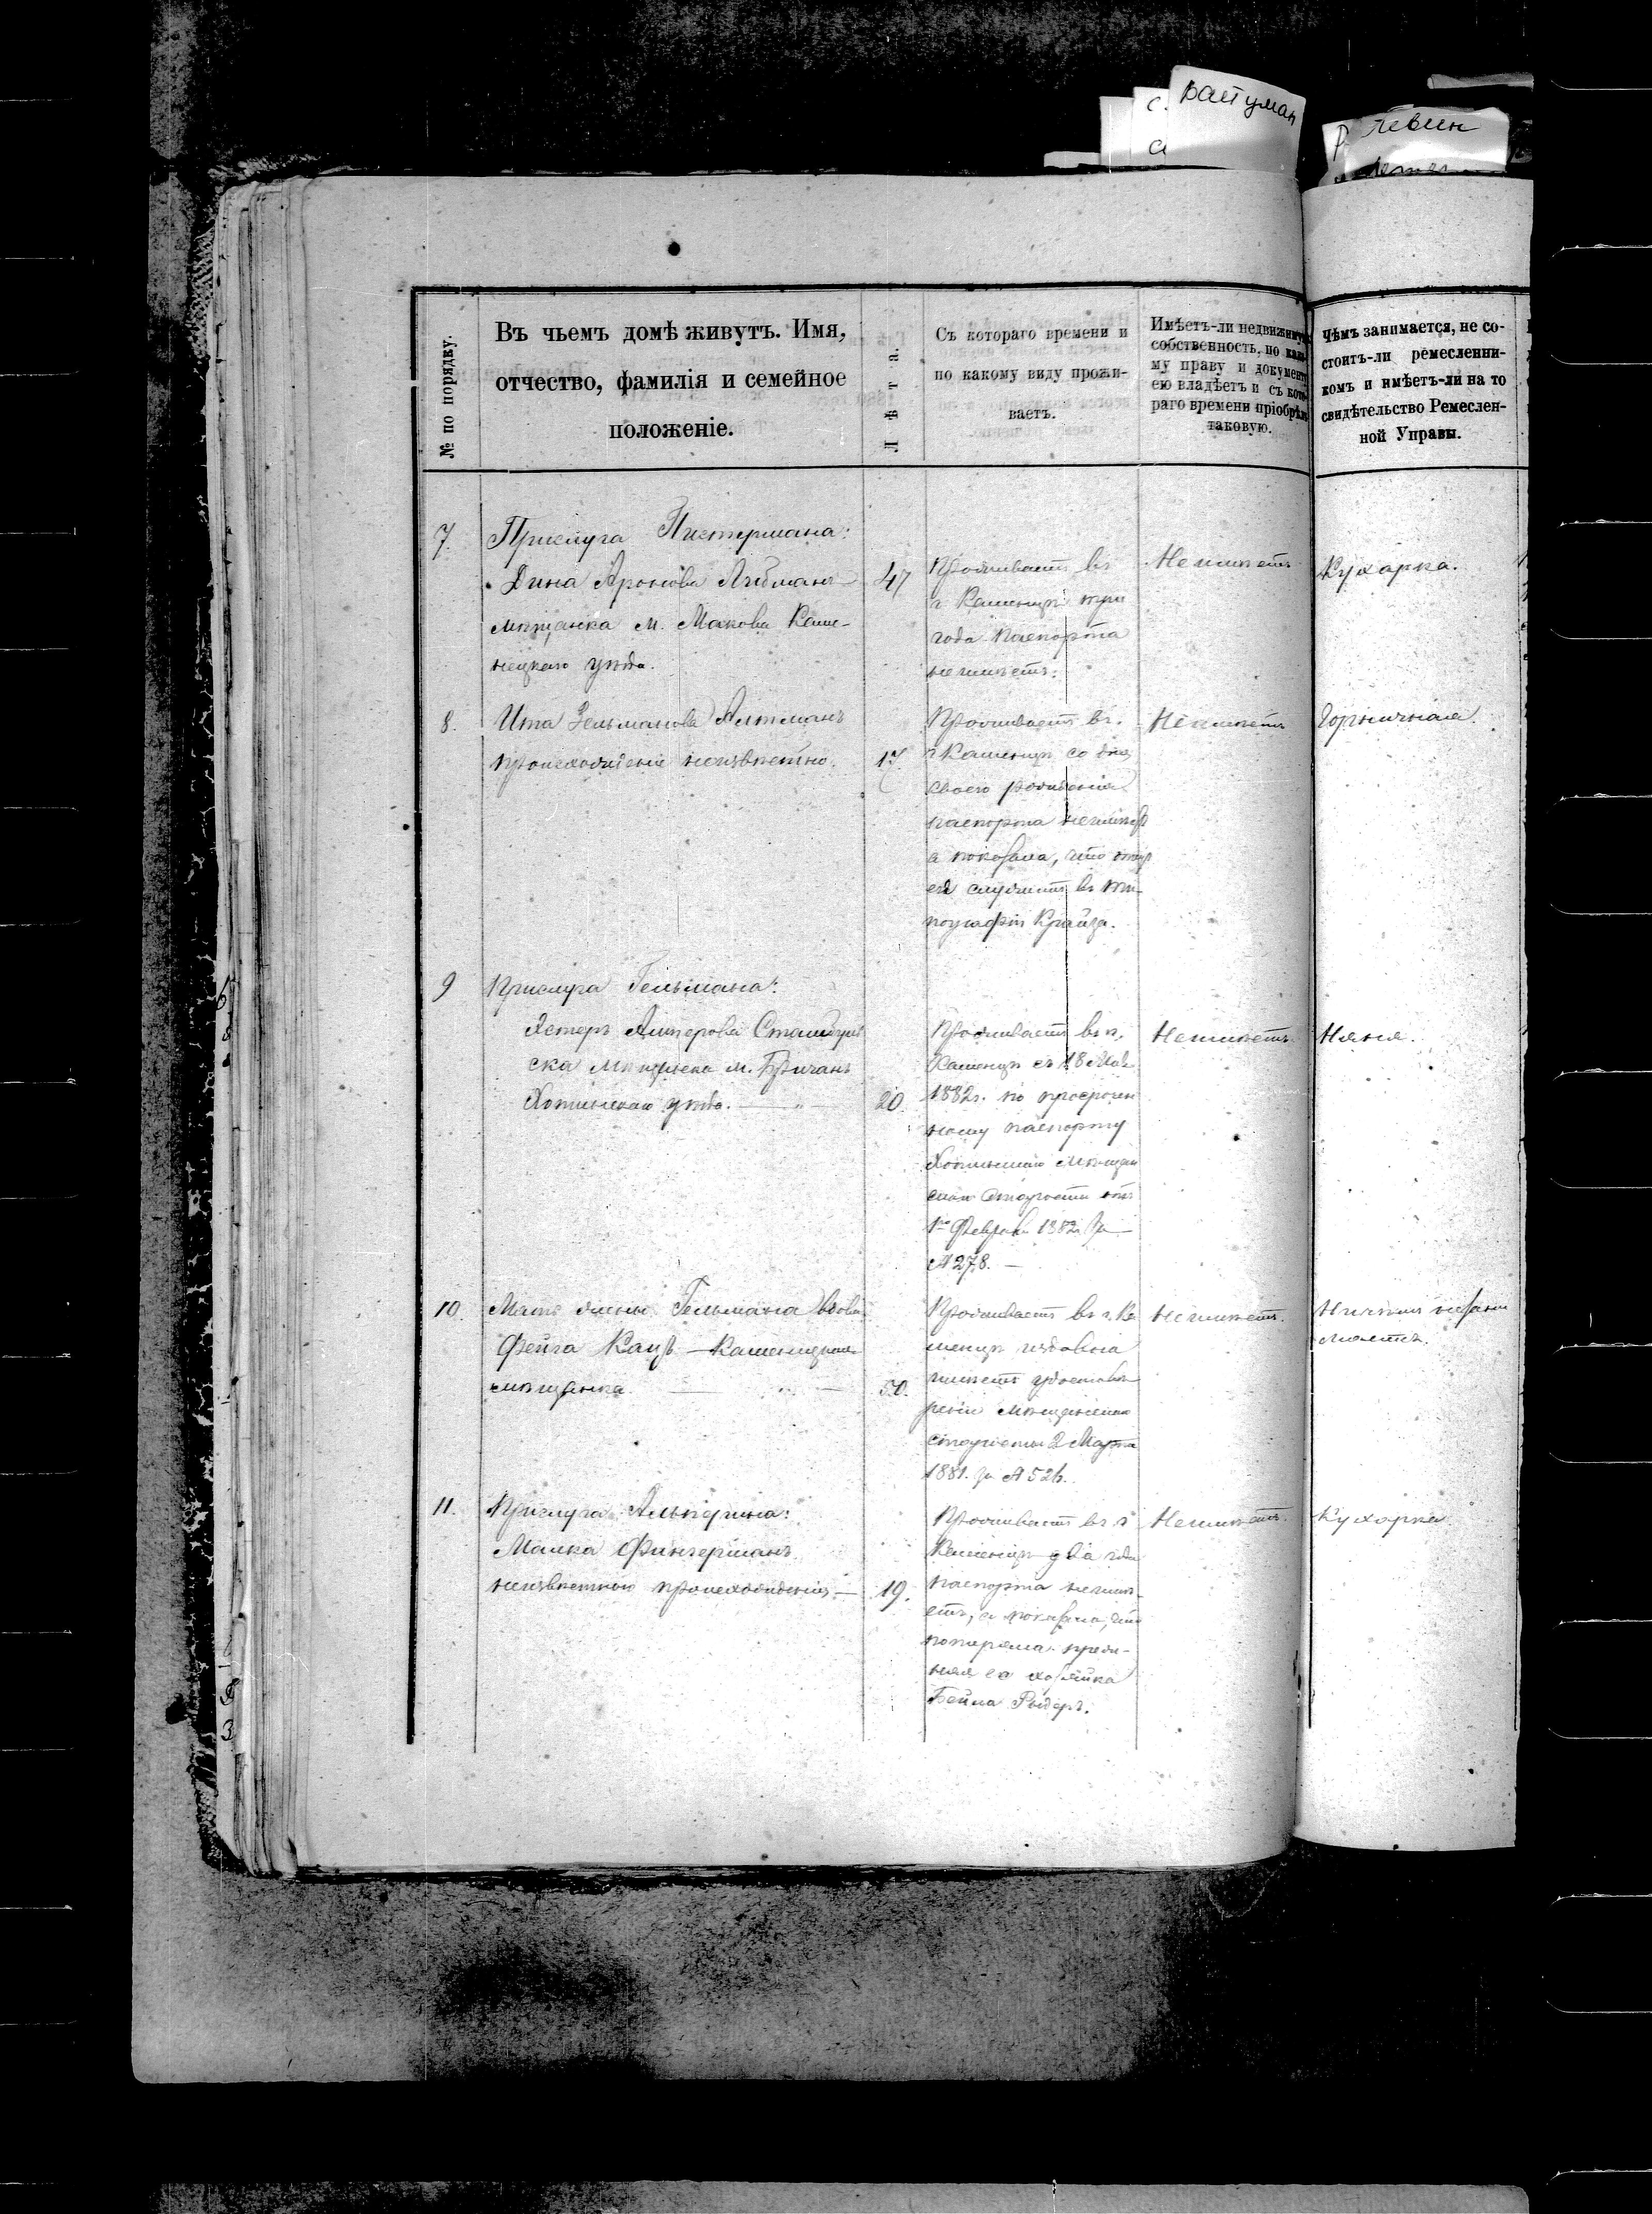 с. Вайтман
Р. Левин
№ по порядку.
Въ чьемъ домѣ живутъ. Имя,
отчество, фамилія и семейное
положеніе.
Лѣта.
Съ котораго времени и
по какому виду прожи-
ваетъ.
Имѣетъ-ли недвижимую
собственность, по
му праву и документу
ею владѣетъ и съ кото-
раго времени пріобрѣлъ
таковую.
Чѣмъ занимается, не со-
стоитъ-ли ремесленни-
комъ и имѣетъ-ли на то
свидѣтельство Ремеслен-
ной Управы.
7.
Прислуга Пистермана:
Дина Аронова Либманъ
мѣщанка м. Макова Каме-
нецкаго уѣзда.
47
Проживаетъ въ
г. Каменцѣ три
года паспорта
неимѣетъ.
Неимѣетъ
Кухарка.
8.
Ита Зельманова Алтманъ
происхожденіе неизвѣстно.
17.
Проживаетъ въ
г. Каменцѣ со дня
своего рожденія
паспорта неимѣетъ
а показала, что отецъ
ея служитъ въ ти-
пографіи Крайза.
Неимѣетъ
Горничная.
9
Прислуга Гельмана:
Эстеръ Алтерова
ска мѣщанка м. Бричанъ
Хотинскаго уѣзда.
20.
Проживаетъ въ г.
Каменцѣ съ 18 Мая
1882 г. по просрочен
ному паспорту
Хотинскаго мѣщан
скаго старосты отъ
1го Февраля 1882 за
№ 278.
Неимѣетъ
Няня.
10.
Мать жены Гельмана вдова
Фейга Кацъ — Каменецкая
мѣщанка.
50.
Проживаетъ въ г. Ка
менцѣ издавна
имѣетъ удостовѣ
реніе мѣщанскаго
старосты 2 Марта
1881. за № 526.
Неимѣетъ.
Ничѣмъ незани
мается.
11.
Прислуга Альперина:
Малка Фингерманъ
неизвѣстного происхожденія —
19.
Проживаетъ въ г.
Каменцѣ два года
паспорта неимѣ-
етъ, а показала, что
потеряла преж-
няя ея хозяйка
Бейла Ридеръ.
Неимѣетъ.
Кухарка